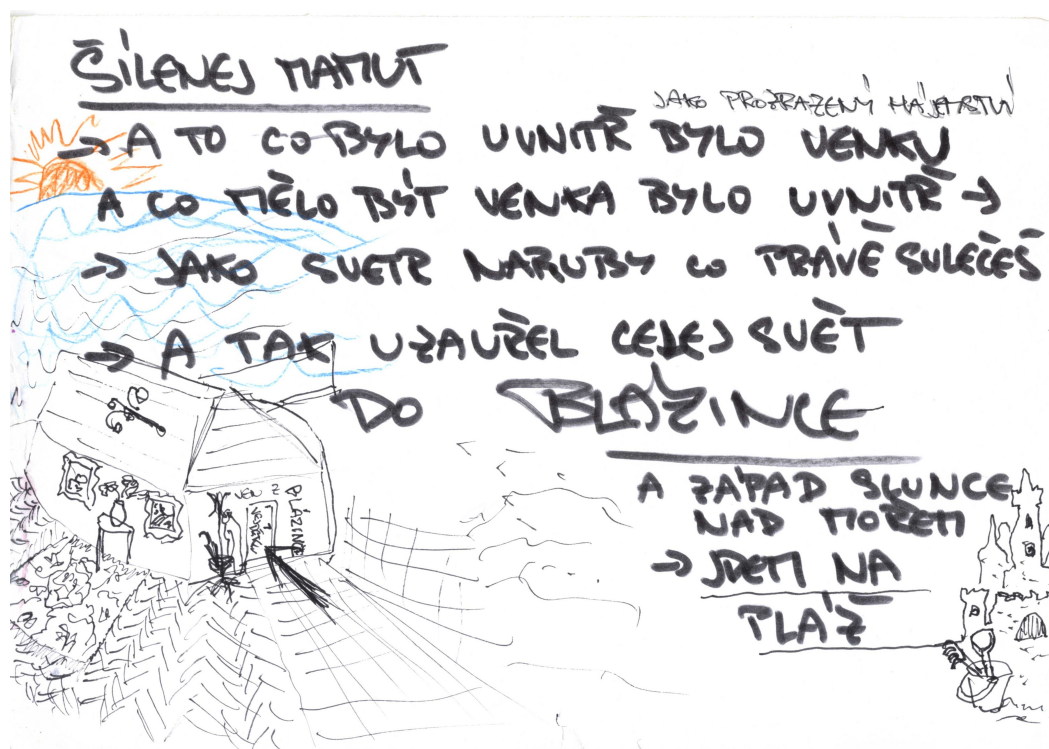 ŠÍLENEJ MAMUT
JAKO PROZRAZENÝ
→ A TO CO BYLO UVNITŘ BYLO VENKU
A CO MĚLO BÝT VENKA BYLO UVNITŘ →
→ JAKO SVETR NARUBY CO PRÁVĚ SVLEČEŠ
→ A TAK UZAVŘEL CELEJ SVĚT
DO BLÁZINCE
A ZÁPAD SLUNCE
NAD MOŘEM
→ JDEM NA
PLÁŽ
VEN Z
BLÁZINCE